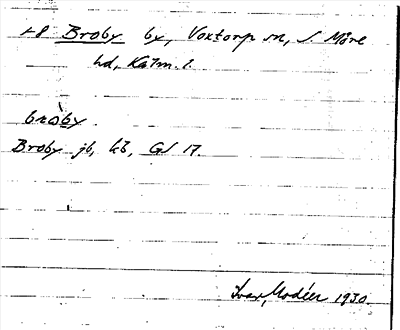 +8 Broby by, Voxtorp sn, S. Möre
hd, Kalm. l.
bròby.
Broby jb, kb, GS 17.
Ivar Modéer 1930.